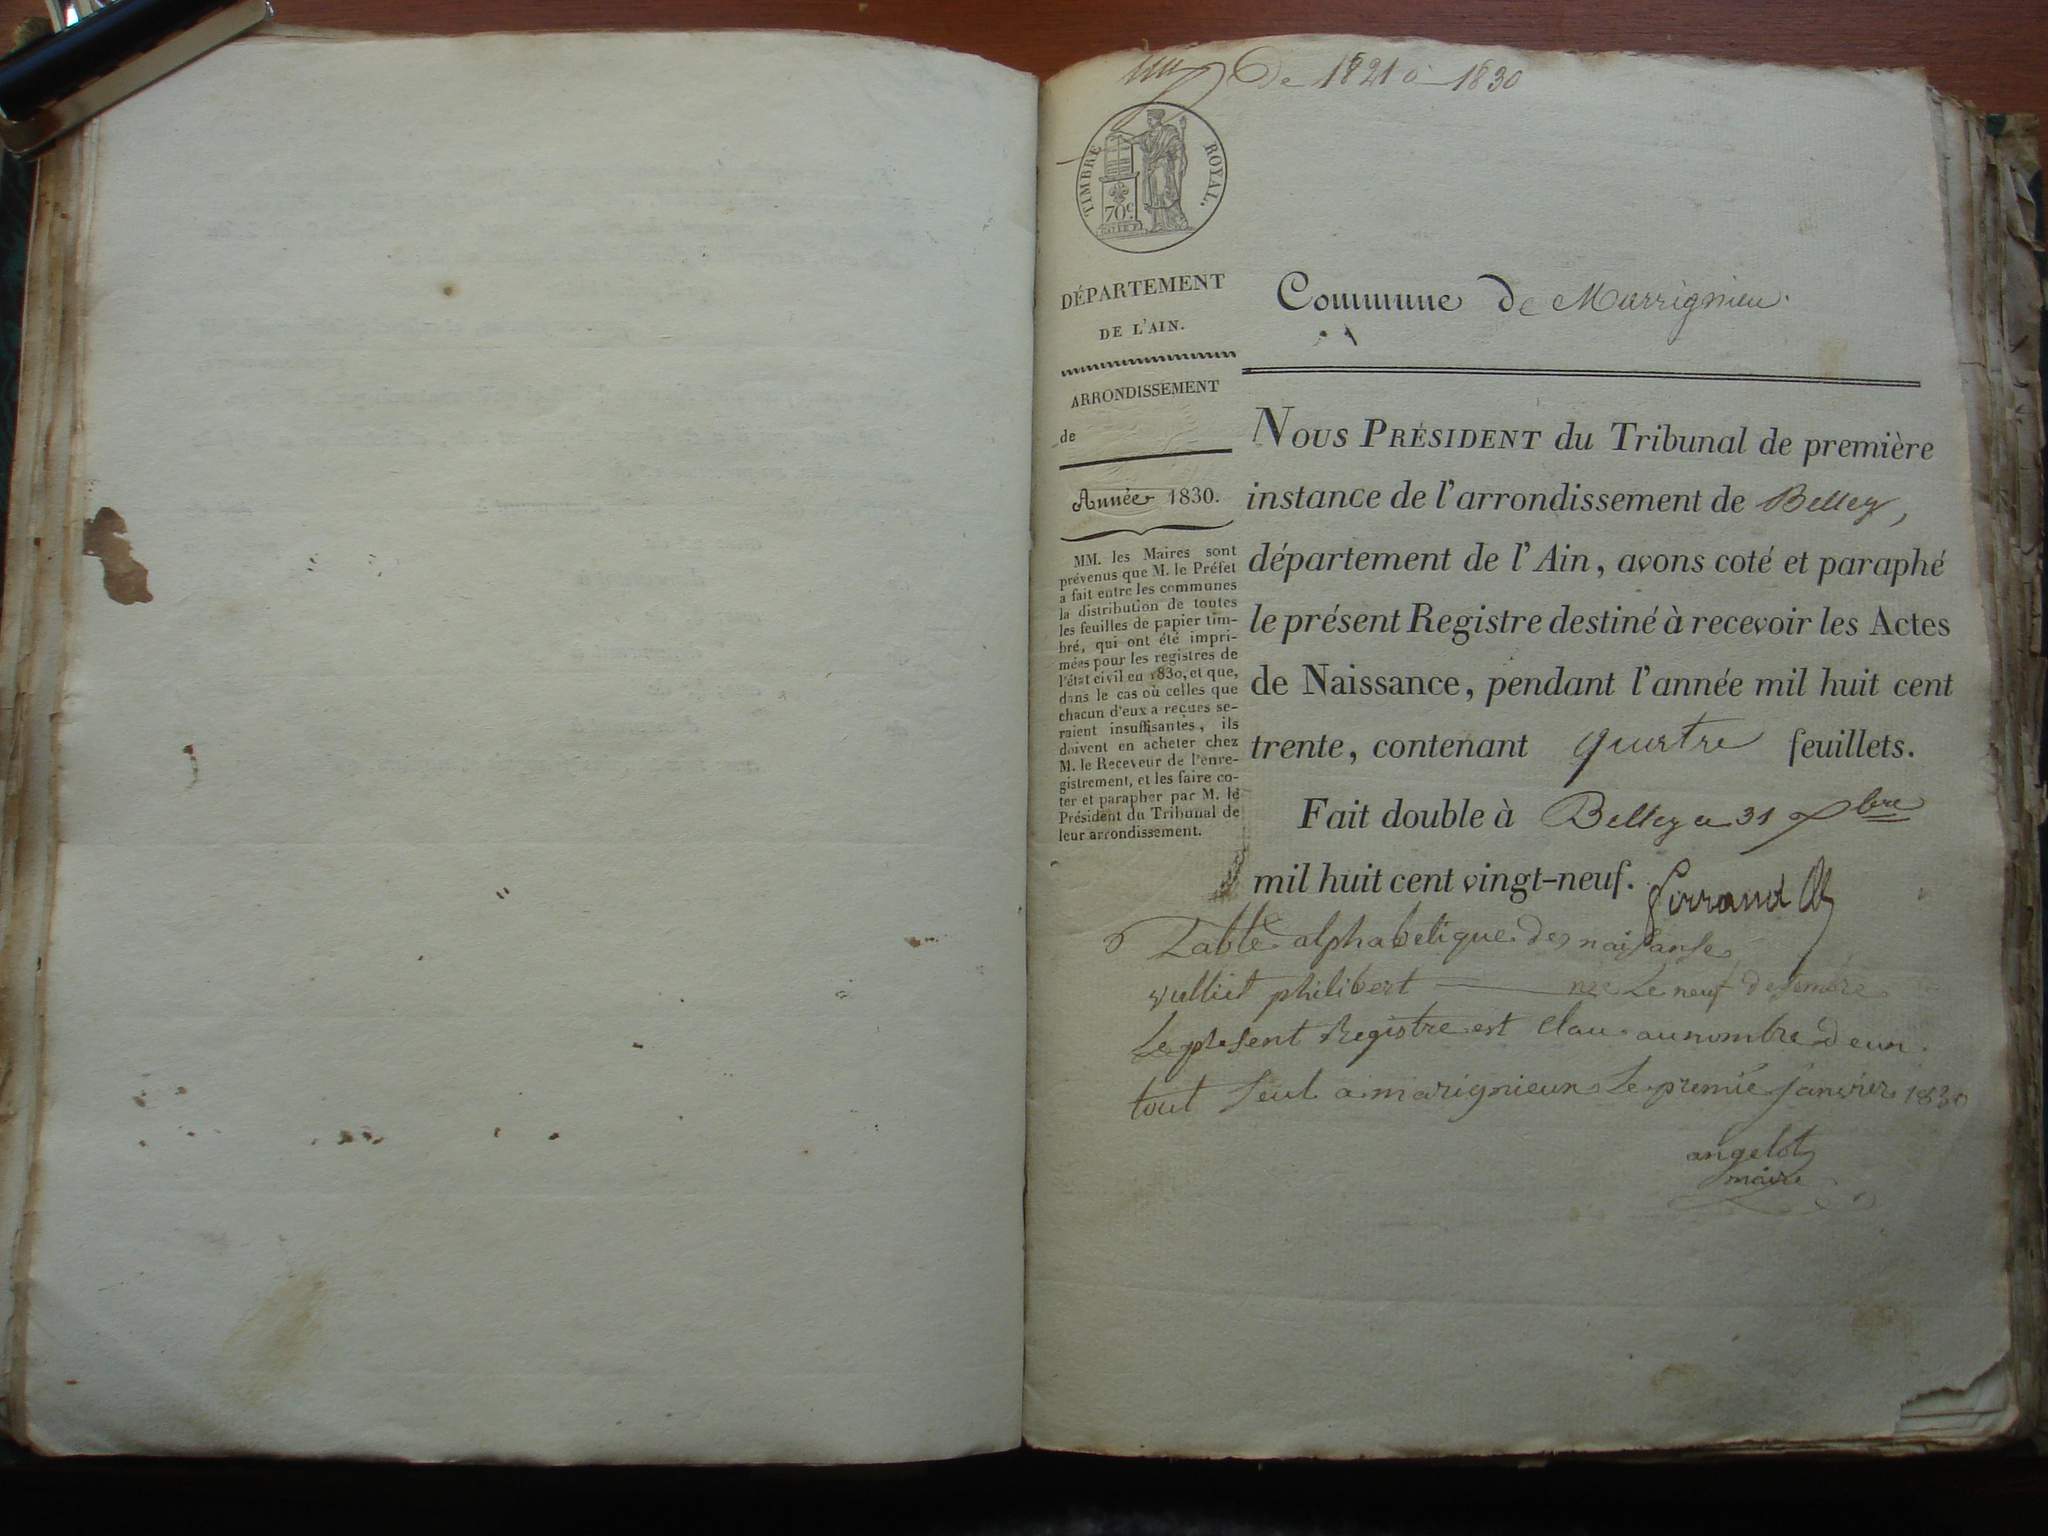 un De 1821 à 1830
TIMBRE ROYAL.
70c
DÉPARTEMENT
DE L'AIN.
ARRONDISSEMENT
de
Année 1830.
MM. les Maires sont
prévenus que M. le Préfet
a fait entre les communes
la distribution de toutes
les feuilles de papier tim-
bré, qui ont été impri-
mées pour les registres de
l'état civil en 1830, et que,
dans le cas où celles que
chacun d'eux a reçues se-
raient insuffisantes, ils
doivent en acheter chez
M. le Receveur de l'enre-
gistrement, et les faire co-
ter et parapher par M. le
Président du Tribunal de
leur arrondissement.
Commune de Marrignieu.
NOUS PRÉSIDENT du Tribunal de première
instance de l'arrondissement de Belley,
département de l'Ain, avons coté et paraphé
le présent Registre destiné à recevoir les Actes
de Naissance, pendant l'année mil huit cent
trente, contenant quatre feuillets.
Fait double à Belley le 31 Xbre
mil huit cent vingt-neuf. ferrand
Table alphabetique des naisanse
vulliet philibert née Le neuf desembre
Le present Registre est Clau au nombre d'eun
tout seul a marignieux Le premié janvier 1830
angelot
maire